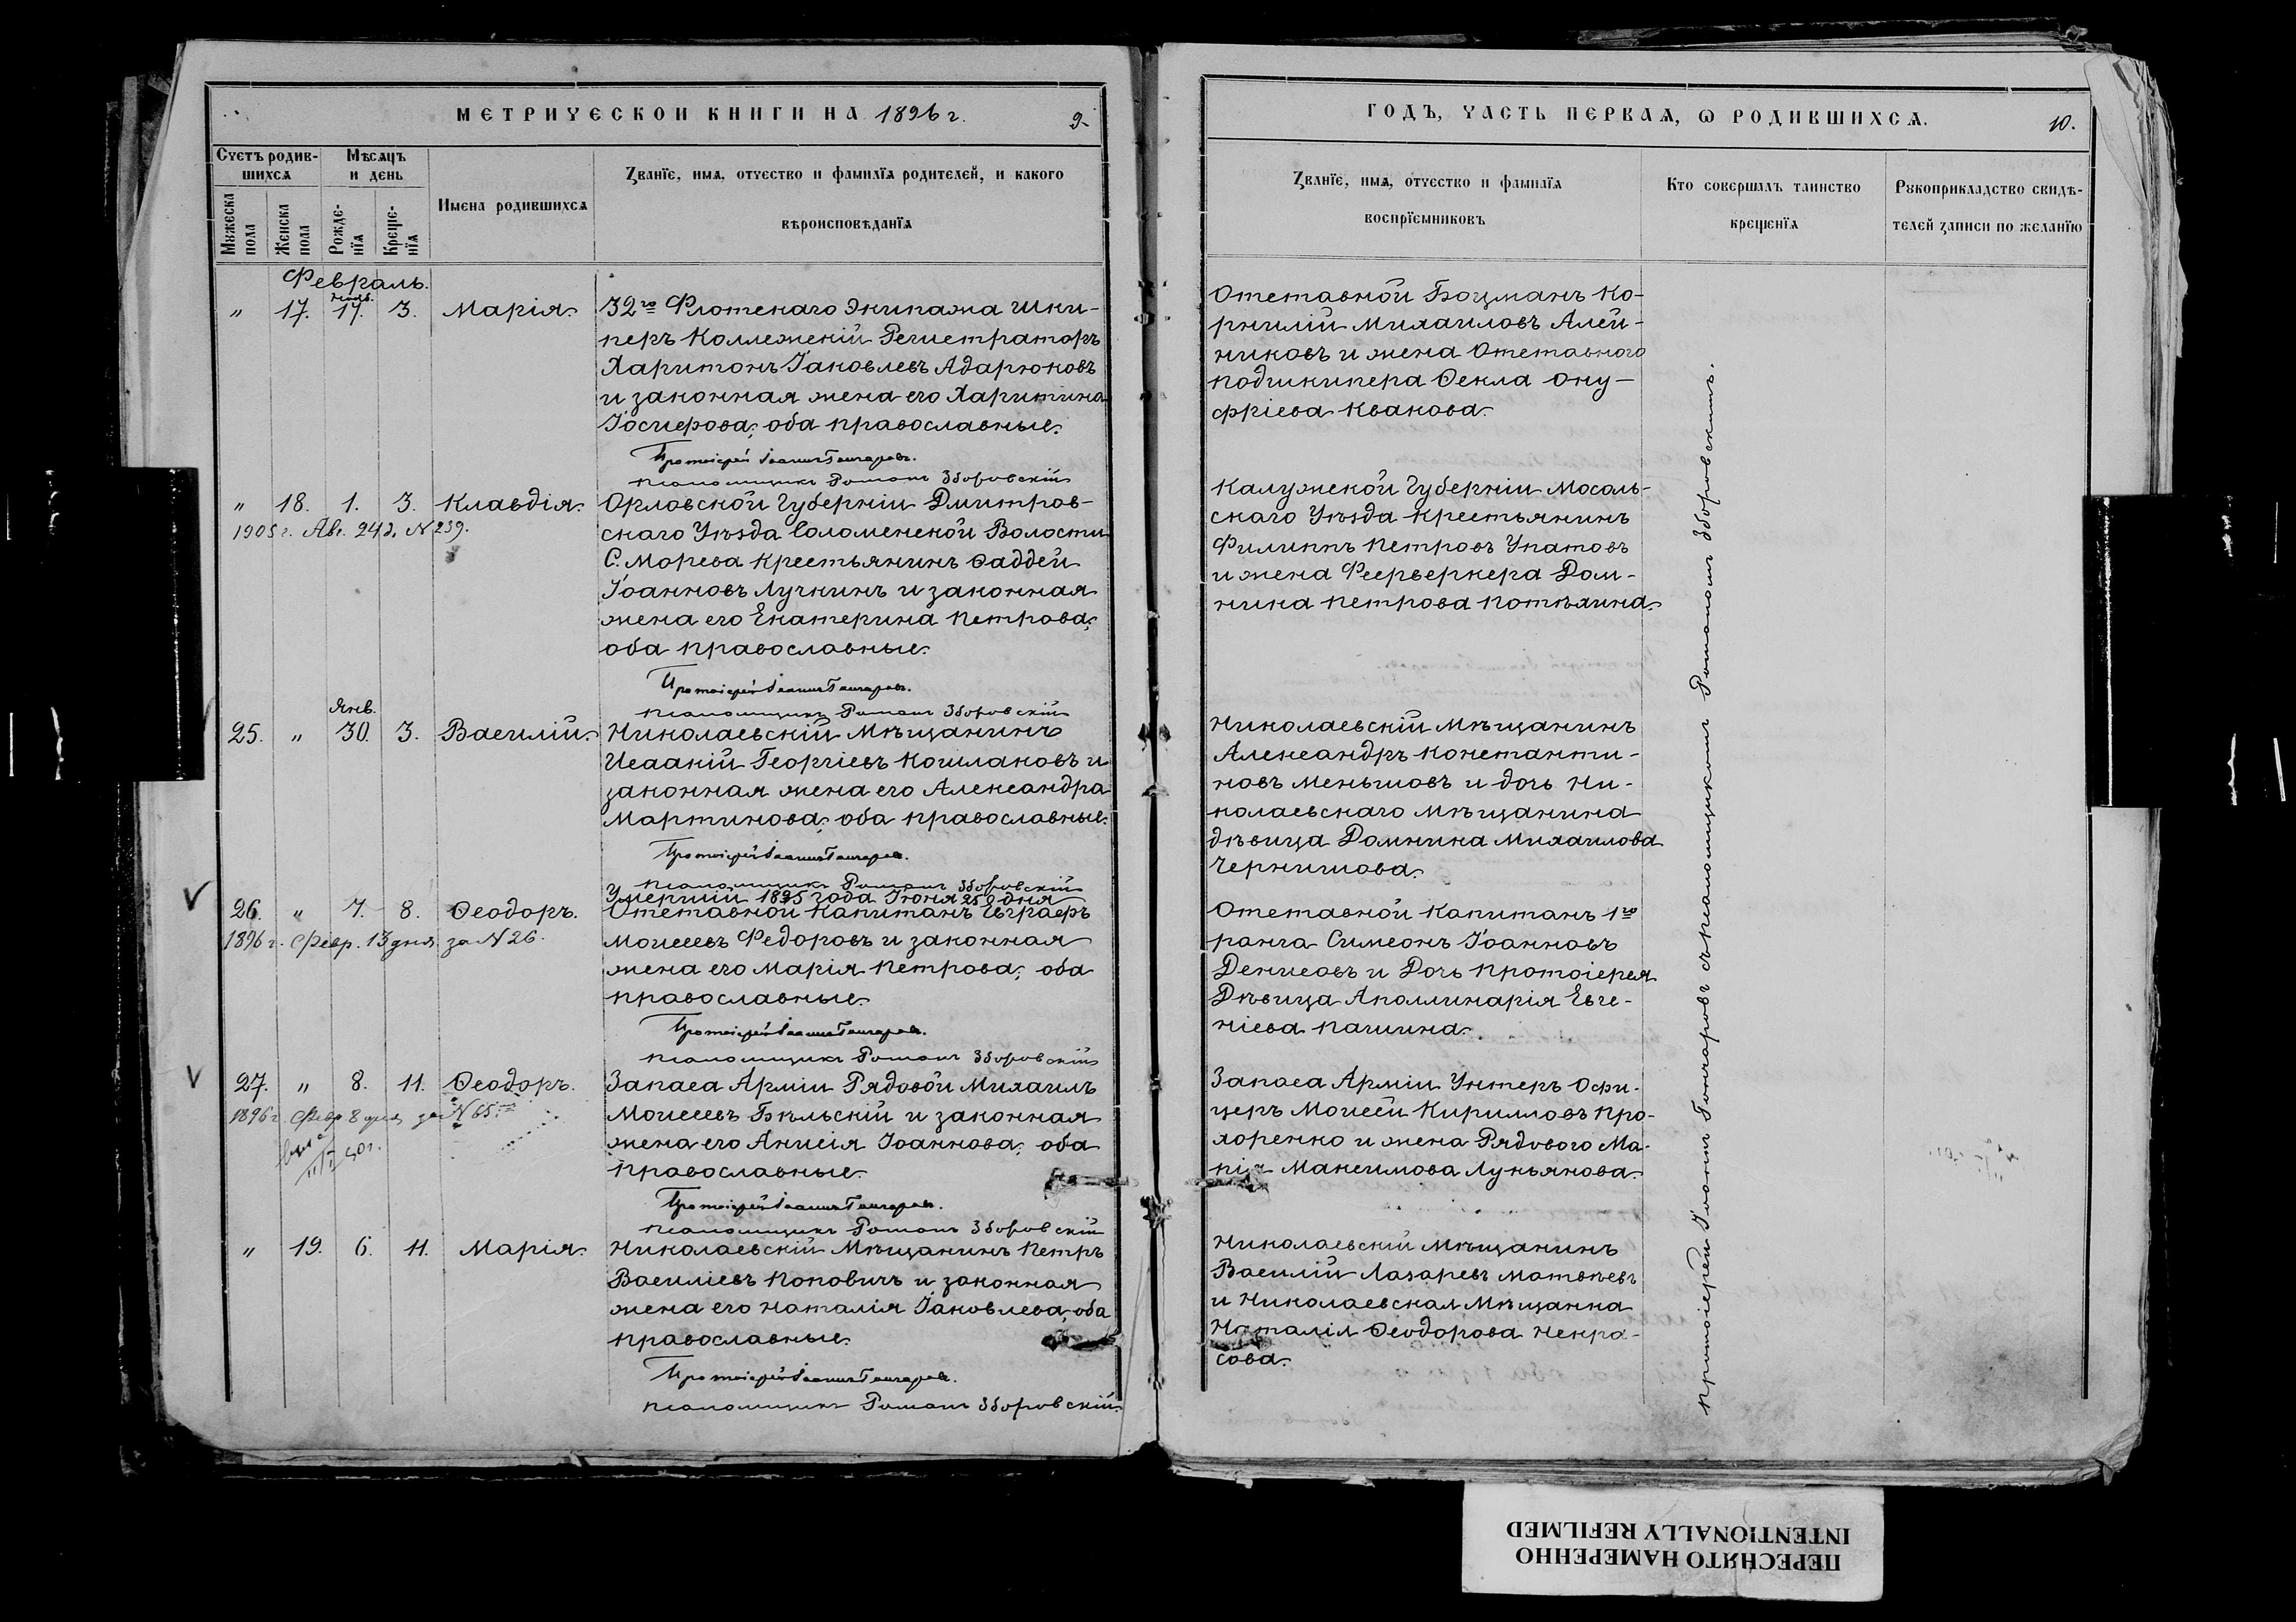 МЕТРИЧЕСКОЙ КНИГИ НА 1896 г.
9.
Счетъ родив-
шихся
Мѣсяцъ
и день
Имена родившихся
Званїе, имя, отчество и фамилїя родителей, и какого
вѣроисповѣданїя
Мужеска
пола
Женска
пола
Рожде-
нїя
Креще-
нїя
Февраль.
" 17. 17. 3. Марія.
32го Флотскаго Экипажа Шки-
перъ Коллежскій Регистраторъ
Харитонъ Іаковлевъ Адарюковъ
и законная жена его Харитина
Іосиѳова; оба православные.
Протоіерей Іоаннъ Гончаровъ.
Псаломщикъ Романъ Зборовскій
" 18. 1. 3. Клавдія.
1905 г. Авг. 24 д. N 239.
Орловской Губерніи Дмитров-
скаго Уѣзда Соломенской Волости
С. Морева Крестьянинъ Ѳаддей
Іоанновъ Лучкинъ и законная
жена его Екатерина Петрова;
оба православные.
Протоіерей Іоаннъ Гончаровъ.
Псаломщикъ Романъ Зборовскій
Янв.
25. " 30. 3. Василій.
Николаевскій Мѣщанинъ
Исаакій Георгіевъ Кошлаковъ и
законная жена его Александра
Мартинова; оба православные.
Протоіерей Іоаннъ Гончаровъ.
Псаломщикъ Романъ Зборовскій
Умершій 1895 года Іюня 25 дня
26. " 7. 8. Ѳеодоръ.
1896 г. Февр. 13 дня за N 26.
Отставной Капитанъ Евграфъ
Моисеевъ Федоровъ и законная
жена его Марія Петрова; оба
православные.
Протоіерей Іоаннъ Гончаровъ.
Псаломщикъ Романъ Зборовскій
27. " 8. 11. Ѳеодоръ.
1896 г. Февр. 8 дня за N 65.
Запаса Арміи Рядовой Михаилъ
Моисеевъ Бѣльскій и законная
жена его Анисія Іоаннова; оба
православные.
Протоіерей Іоаннъ Гончаровъ.
Псаломщикъ Романъ Зборовскій
" 19. 6. 11. Марія.
Николаевскій Мѣщанинъ Петръ
Василіевъ Поповичъ и законная
жена его Наталія Іаковлева; оба
православные.
Протоіерей Іоаннъ Гончаровъ.
Псаломщикъ Романъ Зборовскій.
ГОДЪ, ЧАСТЬ ПЕРВАЯ, Ѡ РОДИВШИХСЯ.
10.
Званїе, имя, отчество и фамилїя
воспрїемниковъ
Кто совершалъ таинство
крещенїя
Рукоприкладство свидѣ-
телей записи по желанїю
Отставной Боцманъ Ко-
рнилій Михаиловъ Алей-
никовъ и жена Отставного
Подшкипера Ѳекла Ону-
фріева Квакова.
Калужской Губерніи Мосаль-
скаго Уѣзда Крестьянинъ
Филиппъ Петровъ Упатовъ
и жена Феерверкера Дом-
нина Петрова Потѣхина.
Николаевскій Мѣщанинъ
Александръ Константи-
новъ Меньшовъ и дочь Ни-
колаевскаго Мѣщанина
дѣвица Домнина Михаилова
Чернишова.
Отставной Капитанъ 1го
ранга Симеонъ Іоанновъ
Денисовъ и Дочь Протоіерея
Дѣвица Аполлинарія Евге-
ніева Пашина.
Запаса Арміи Унтеръ Офи-
церъ Моисей Кирилловъ Про-
хоренко и жена Рядового Ма-
рія Максимова Лукьянова.
Николаевскій Мѣщанинъ
Василій Лазаревъ Матвѣевъ
и Николаевская Мѣщанка
Наталія Ѳеодорова Некра-
сова.
Протоіерей Іоаннъ Гончаровъ съ Псаломщикомъ Романомъ Зборовскимъ.
ПЕРЕСНЯТО НАМЕРЕННО
INTENTIONALLY REFILMED